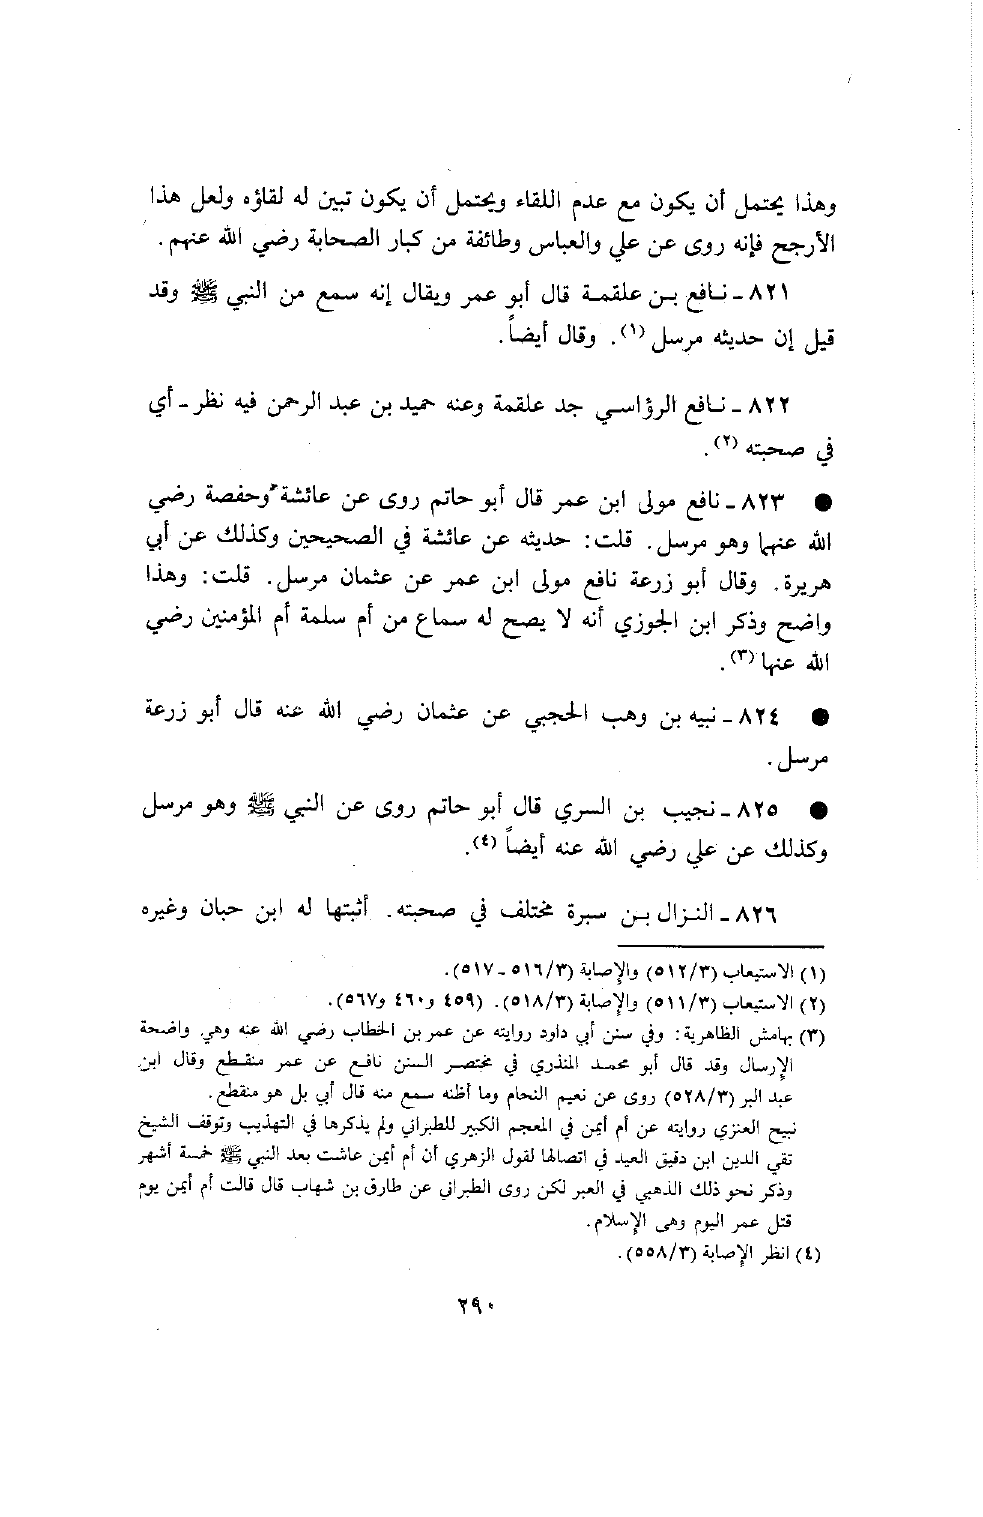 وهذا يحتمل أن يكون مع عدم اللقاء ويحتمل أن يكون تبين له لقاؤه ولعل هذا
الأرجح فإنه روى عن علي والعباس وطائفة من كبار الصحابة رضي الله عنهم.
٨٢١ - نافع بن علقمة قال أبو عمر ويقال إنه سمع من النبي ﷺ وقد
قيل إن حديثه مرسل (١). وقال أيضاً.
٨٢٢ - نافع الرؤاسي جد علقمة وعنه حميد بن عبد الرحمن فيه نظر - أي
في صحبته (٢).
● ٨٢٣ - نافع مولى ابن عمر قال أبو حاتم روى عن عائشة وحفصة رضي
الله عنهما وهو مرسل. قلت: حديثه عن عائشة في الصحيحين وكذلك عن أبي
هريرة. وقال أبو زرعة نافع مولى ابن عمر عن عثمان مرسل. قلت: وهذا
واضح وذكر ابن الجوزي أنه لا يصح له سماع من أم سلمة أم المؤمنين رضي
الله عنها (٣).
● ٨٢٤ - نبيه بن وهب الحجبي عن عثمان رضي الله عنه قال أبو زرعة
مرسل.
● ٨٢٥ - نجيب بن السري قال أبو حاتم روى عن النبي ﷺ وهو مرسل
وكذلك عن علي رضي الله عنه أيضاً (٤).
٨٢٦ - النزال بن سبرة مختلف في صحبته. أثبتها له ابن حبان وغيره
(١) الاستيعاب (٥١٢/٣) والإصابة (٥١٦/٣ - ٥١٧).
(٢) الاستيعاب (٥١١/٣) والإصابة (٥١٨/٣). (٤٥٩ و٤٦٠ و٥٦٧).
(٣) بهامش الظاهرية: وفي سنن أبي داود روايته عن عمر بن الخطاب رضي الله عنه وهي واضحة
الإرسال وقد قال أبو محمد المنذري في مختصر السنن نافع عن عمر منقطع وقال ابن
عبد البر (٥٢٨/٣) روى عن نعيم النحام وما أظنه سمع منه قال أبي بل هو منقطع.
نبيح العنزي روايته عن أم أيمن في المعجم الكبير للطبراني ولم يذكرها في التهذيب وتوقف الشيخ
تقي الدين ابن دقيق العيد في اتصالها لقول الزهري أن أم أيمن عاشت بعد النبي ﷺ خمسة أشهر
وذكر نحو ذلك الذهبي في العبر لكن روى الطبراني عن طارق بن شهاب قال قالت أم أيمن يوم
قتل عمر اليوم وهى الإسلام.
(٤) انظر الإصابة (٥٥٨/٣).
٢٩٠